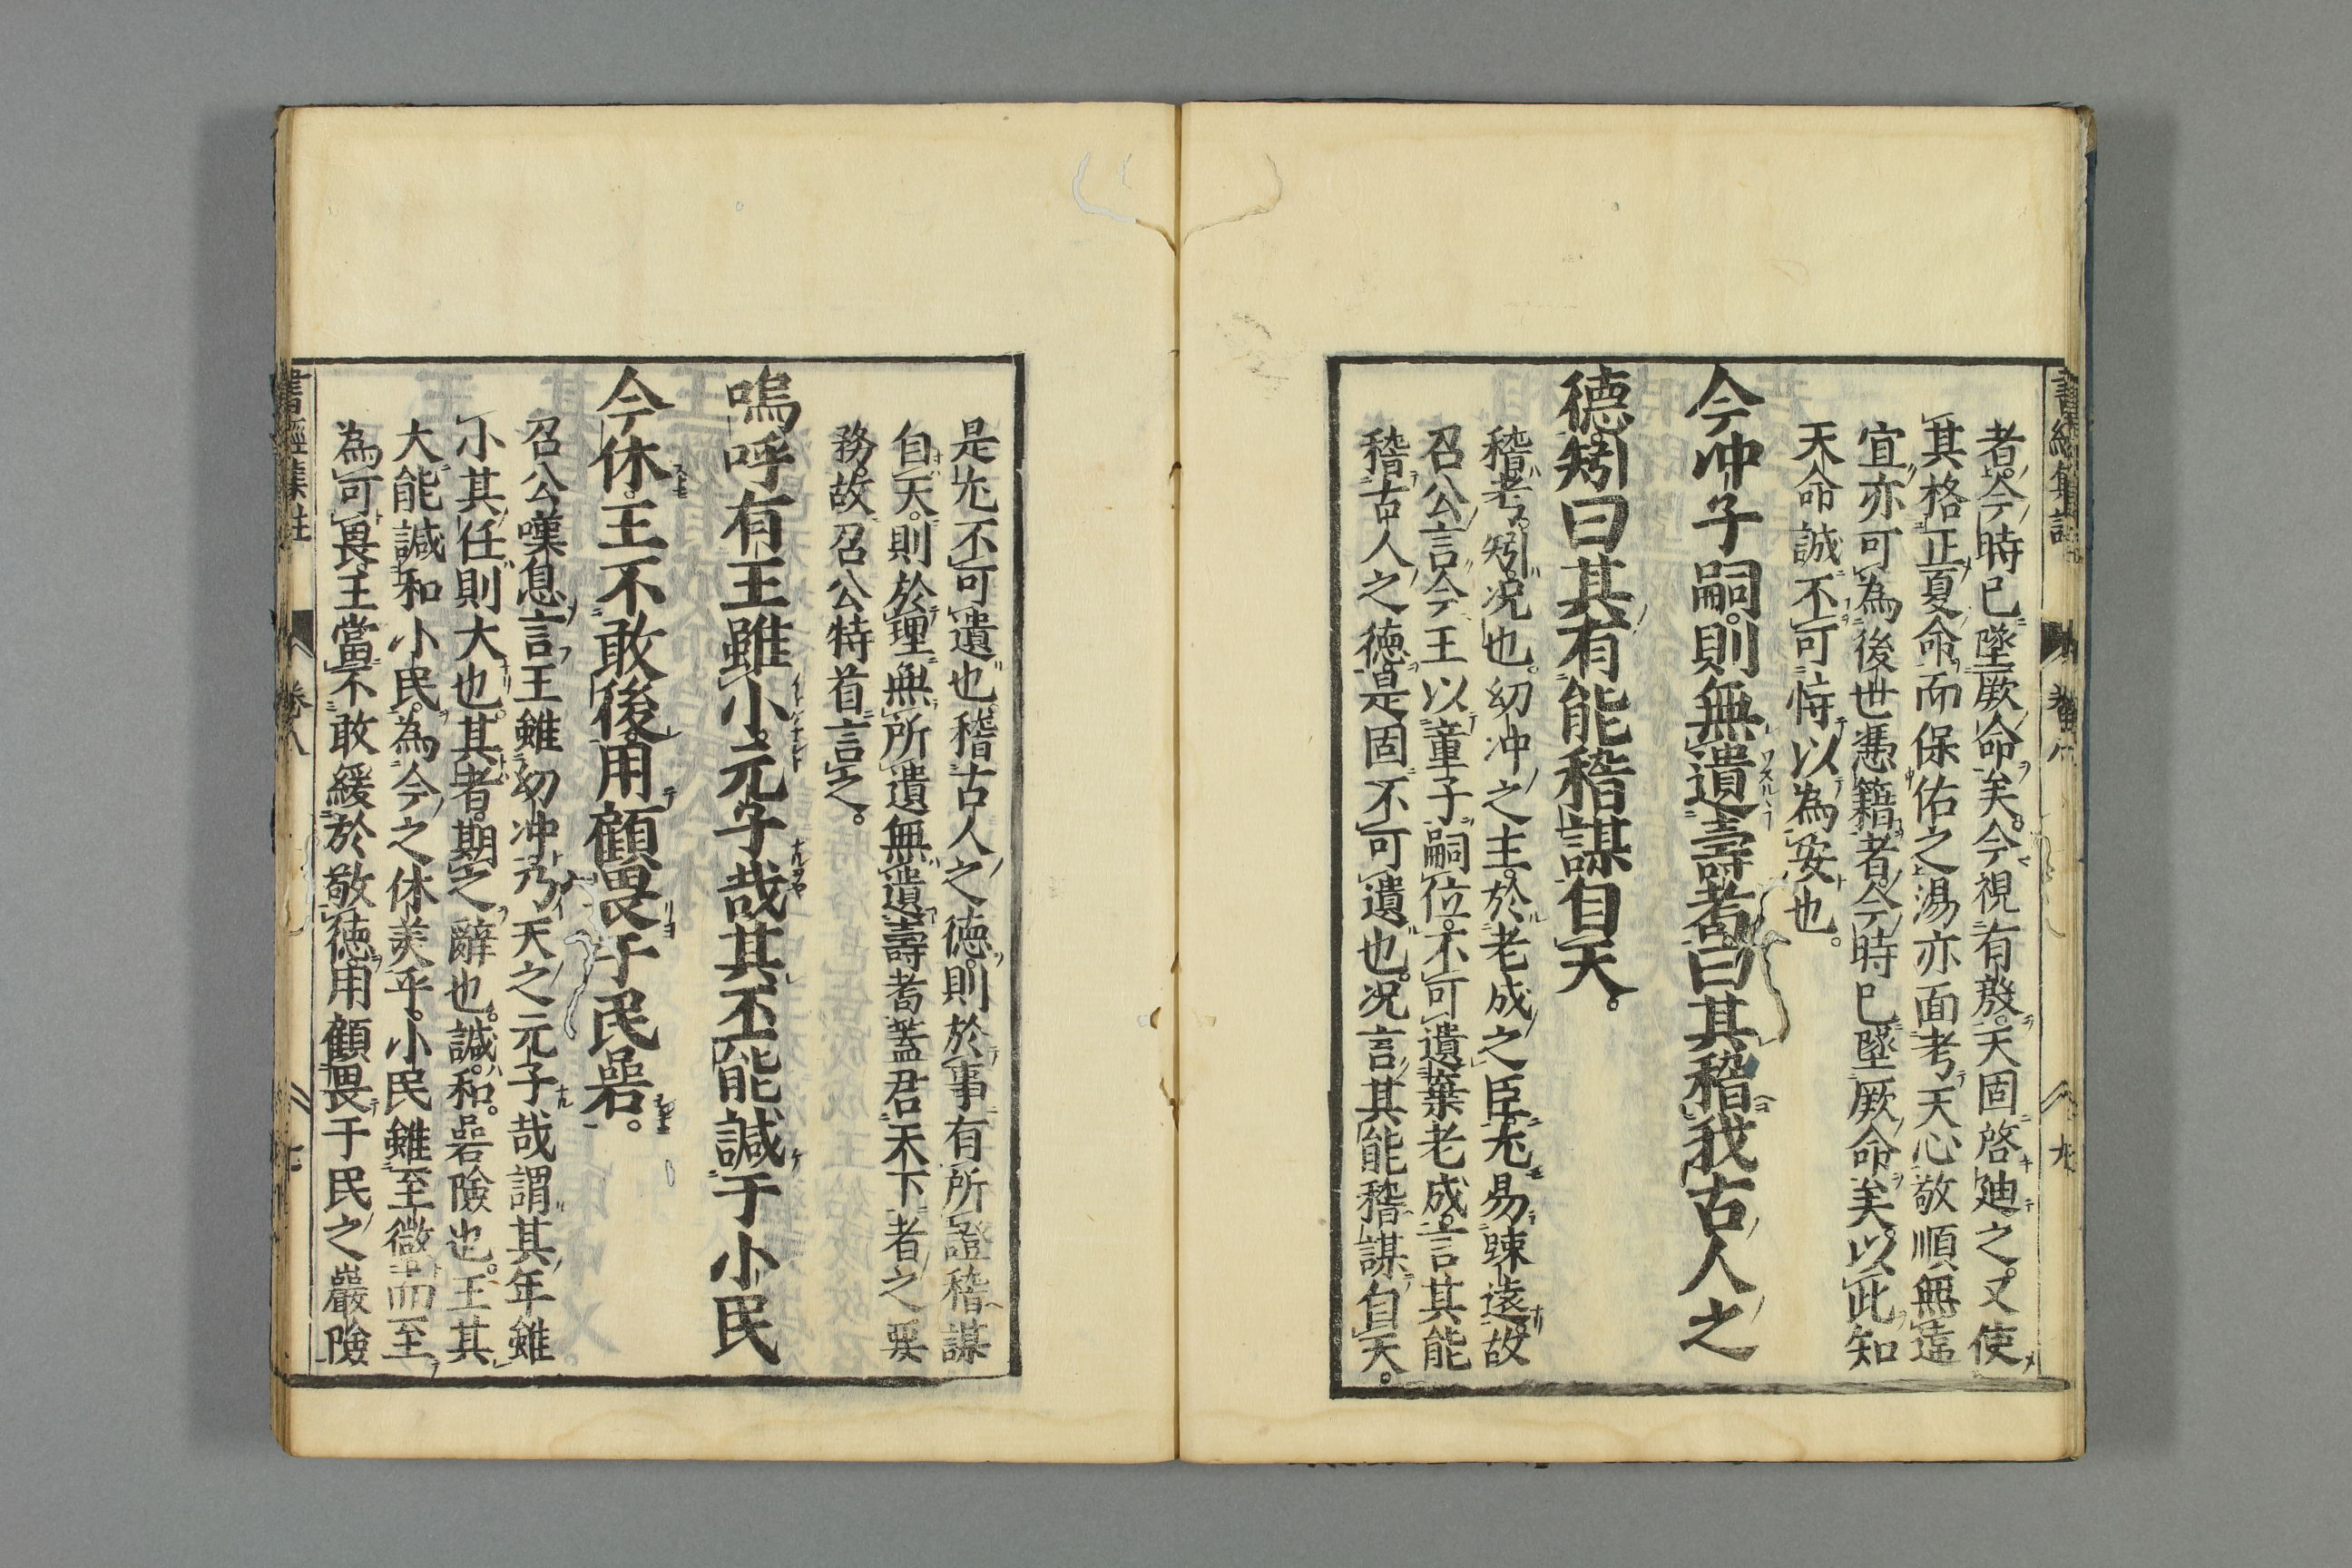 者今時已墜厥命矣今視有殷天固啓迪之又使
其格正夏命而保佑之湯亦面考天心敬順無違
宜亦可為後世憑籍者今時已墜厥命矣以此知
天命誠不可恃以為安也
今冲子嗣則無遺壽耇曰其稽我古人之
德矧曰其有能稽謀自天
稽考矧况也幼冲之主於老成之臣尤易踈遠故
召公言今王以童子嗣位不可遺棄老成言其能
稽古人之徳是固不可遺也况言其能稽謀自天
是尤不可遺也稽古人之徳則於事有所證稽謀
自天則於理無所遺無遺壽耇蓋君天下者之要
務故召公特首言之
嗚呼有王雖小元子哉其丕能諴于小民
今休王不敢後用顧畏于民碞
召公嘆息言王雖幼冲乃天之元子哉謂其年雖
小其任則大也其者期之辭也諴和碞險也王其
大能諴和小民為今之休美乎小民雖至微而至
為可畏王當不敢緩於敬徳用顧畏于民之巖險
書經集註 卷八